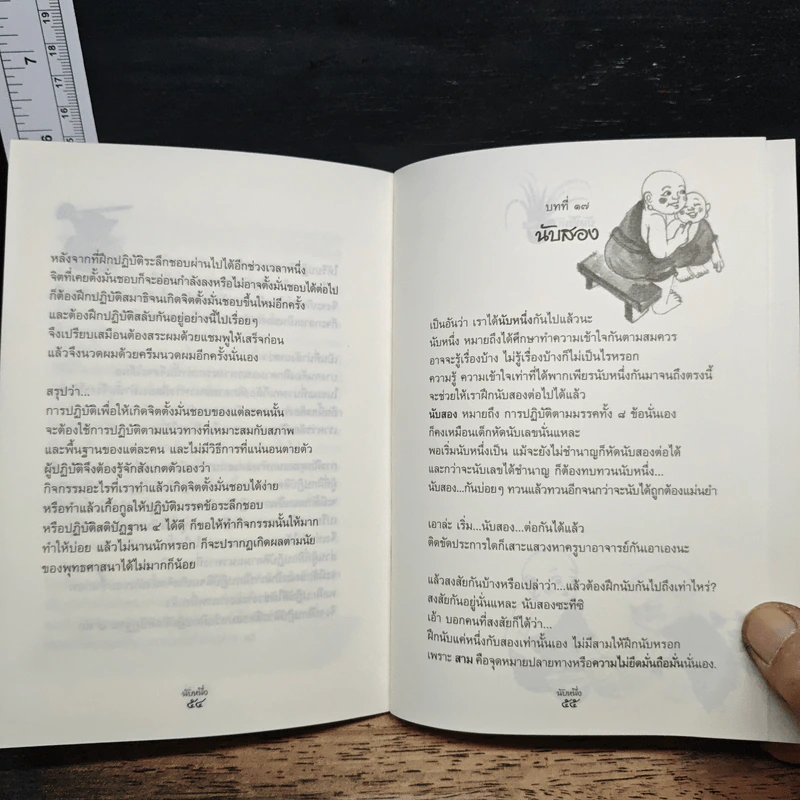 หลังจากที่ฝึกปฏิบัติระลึกชอบผ่านไปได้อีกช่วงเวลาหนึ่ง
จิตที่เคยตั้งมั่นชอบก็จะอ่อนกำลังลงหรือไม่อาจตั้งมั่นชอบได้ต่อไป
ก็ต้องฝึกปฏิบัติสมาธิจนเกิดจิตตั้งมั่นชอบขึ้นใหม่อีกครั้ง
และต้องฝึกปฏิบัติสลับกันอยู่อย่างนี้ไปเรื่อยๆ
จึงเปรียบเสมือนต้องสระผมด้วยแชมพูให้เสร็จก่อน
แล้วจึงนวดผมด้วยครีมนวดผมอีกครั้งนั่นเอง
สรุปว่า...
การปฏิบัติเพื่อให้เกิดจิตตั้งมั่นชอบของแต่ละคนนั้น
จะต้องใช้การปฏิบัติตามแนวทางที่เหมาะสมกับสภาพ
และพื้นฐานของแต่ละคน และไม่มีวิธีการที่แน่นอนตายตัว
ผู้ปฏิบัติจึงต้องรู้จักสังเกตตัวเองว่า
กิจกรรมอะไรที่เราทำแล้วเกิดจิตตั้งมั่นชอบได้ง่าย
หรือทำแล้วเกื้อกูลให้ปฏิบัติมรรคข้อระลึกชอบ
หรือปฏิบัติสติปัฏฐาน ๔ ได้ดี ก็ขอให้ทำกิจกรรมนั้นให้มาก
ทำให้บ่อย แล้วไม่นานนักหรอก ก็จะปรากฏเกิดผลตามนัย
ของพุทธศาสนาได้ไม่มากก็น้อย
นับหนึ่ง
๕๔
บทที่ ๑๗
นับสอง
เป็นอันว่า เราได้นับหนึ่งกันไปแล้วนะ
นับหนึ่ง หมายถึงได้ศึกษาทำความเข้าใจกันตามสมควร
อาจจะรู้เรื่องบ้าง ไม่รู้เรื่องบ้างก็ไม่เป็นไรหรอก
ความรู้ ความเข้าใจเท่าที่ได้พากเพียรนับหนึ่งกันมาจนถึงตรงนี้
จะช่วยให้เราฝึกนับสองต่อไปได้แล้ว
นับสอง หมายถึง การปฏิบัติตามมรรคทั้ง ๘ ข้อนั่นเอง
ก็คงเหมือนเด็กหัดนับเลขนั่นแหละ
พอเริ่มนับหนึ่งเป็น แม้จะยังไม่ชำนาญก็หัดนับสองต่อได้
และกว่าจะนับเลขได้ชำนาญ ก็ต้องทบทวนนับหนึ่ง...
นับสอง...กันบ่อยๆ ทวนแล้วทวนอีกจนกว่าจะนับได้ถูกต้องแม่นยำ
เอาล่ะ เริ่ม...นับสอง...ต่อกันได้แล้ว
ติดขัดประการใดก็เสาะแสวงหาครูบาอาจารย์กันเอาเองนะ
แล้วสงสัยกันบ้างหรือเปล่าว่า...แล้วต้องฝึกนับกันไปถึงเท่าไหร่?
สงสัยกันอยู่นั่นแหละ นับสองซะทีซิ
เอ้า บอกคนที่สงสัยก็ได้ว่า...
ฝึกนับแค่หนึ่งกับสองเท่านั้นเอง ไม่มีสามให้ฝึกนับหรอก
เพราะ สาม คือจุดหมายปลายทางหรือความไม่ยึดมั่นถือมั่นนั่นเอง.
นับหนึ่ง
๕๕
7
6
19
18
17
16